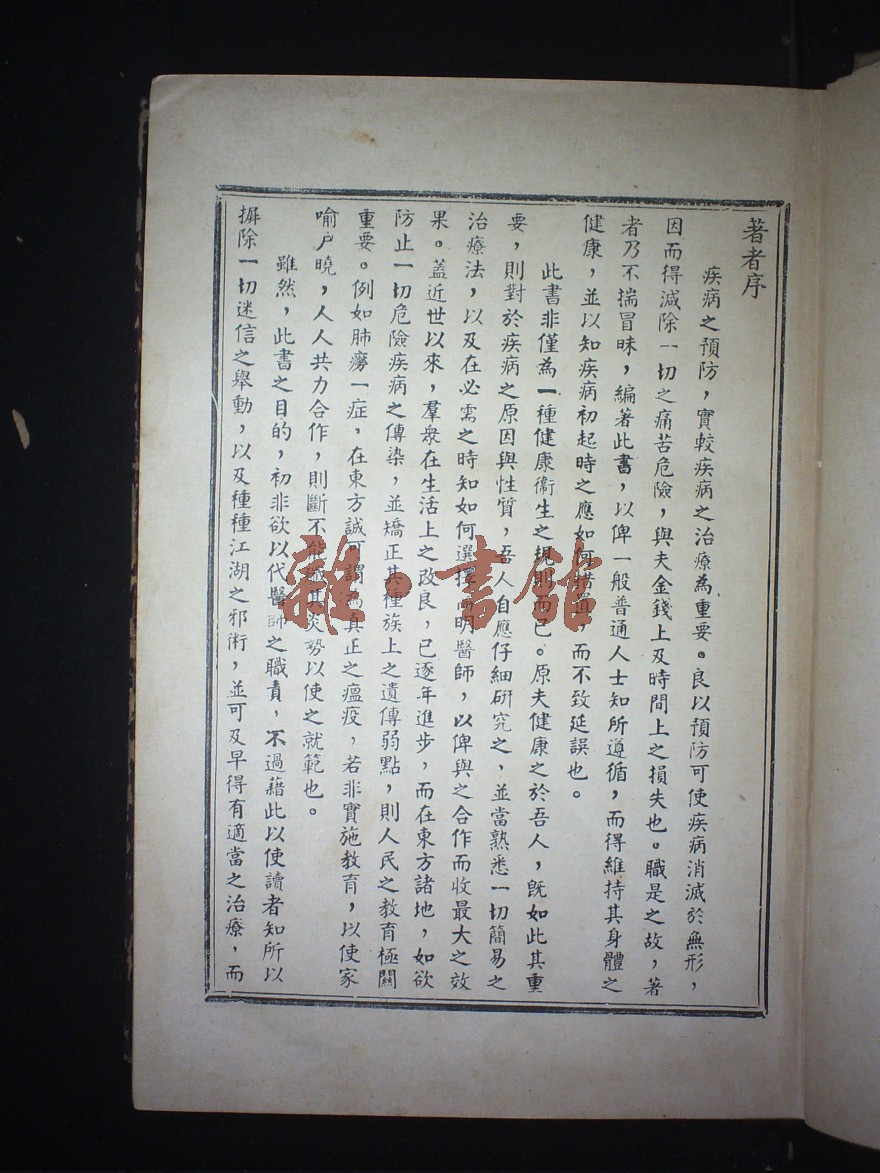 著者序
疾病之預防，實較疾病之治療為重要。良以預防可使疾病消滅於無形，
因而得減除一切之痛苦危險，與夫金錢上及時間上之損失也。職是之故，著
者乃不揣冒昧，編著此書，以俾一般普通人士知所遵循，而得維持其身體之
健康，並以知疾病初起時之應如何措置，而不致延誤也。
此書非僅為一種健康衞生之規則而已。原夫健康之於吾人，既如此其重
要，則對於疾病之原因與性質，吾人自應仔細研究之，並當熟悉一切簡易之
治療法，以及在必需之時知如何選擇高明醫師，以俾與之合作而收最大之效
果。蓋近世以來，羣衆在生活上之改良，已逐年進步，而在東方諸地，如欲
防止一切危險疾病之傳染，並矯正其種族上之遺傳弱點，則人民之教育極關
重要。例如肺癆一症，在東方誠可謂為真正之瘟疫，若非實施教育，以使家
喻户曉，人人共力合作，則斷不能其炎勢以使之就範也。
雖然，此書之目的，初非欲以代醫師之職責，不過藉此以使讀者知所以
摒除一切迷信之舉動，以及種種江湖之邪術，並可及早得有適當之治療，而
雜·書館